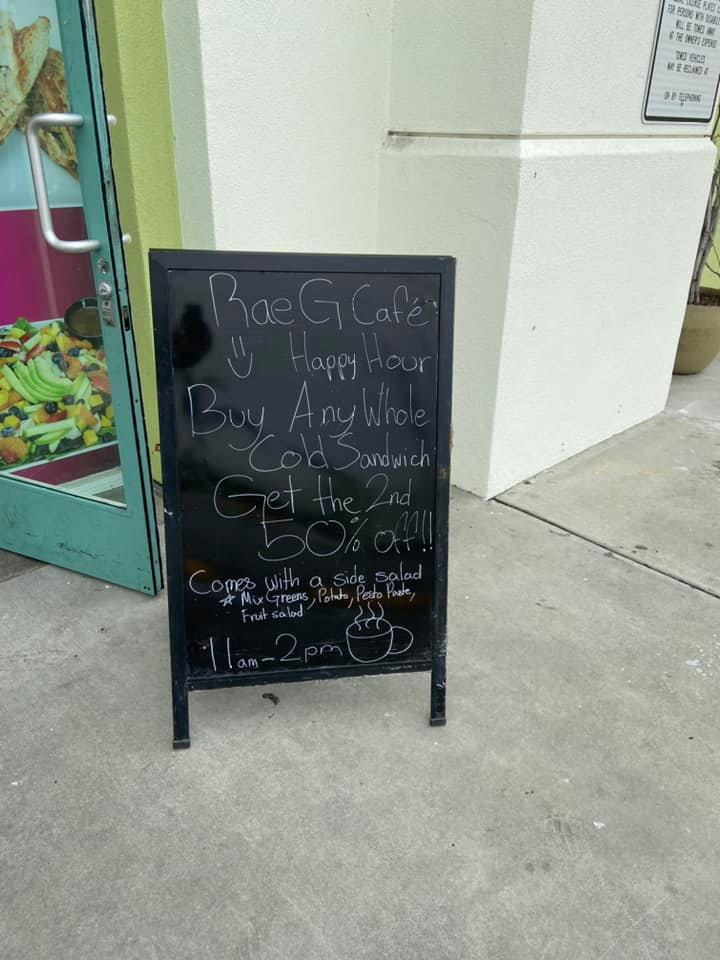 Rae G Café
Happy Hour
Buy Any Whole
Cold Sandwich
Get the 2nd
50% off!!
Comes with a side salad
Mix Greens, Potato, Pesto Paste,
Fruit salad
11am-2pm
FOR PERSONS WITH DISABI
WILL BE TOWED AWAY
AT THE OWNER'S EXPENSE
TOWED VEHICLES
MAY BE RECLAIMED AT
OR BY TELEPHONING